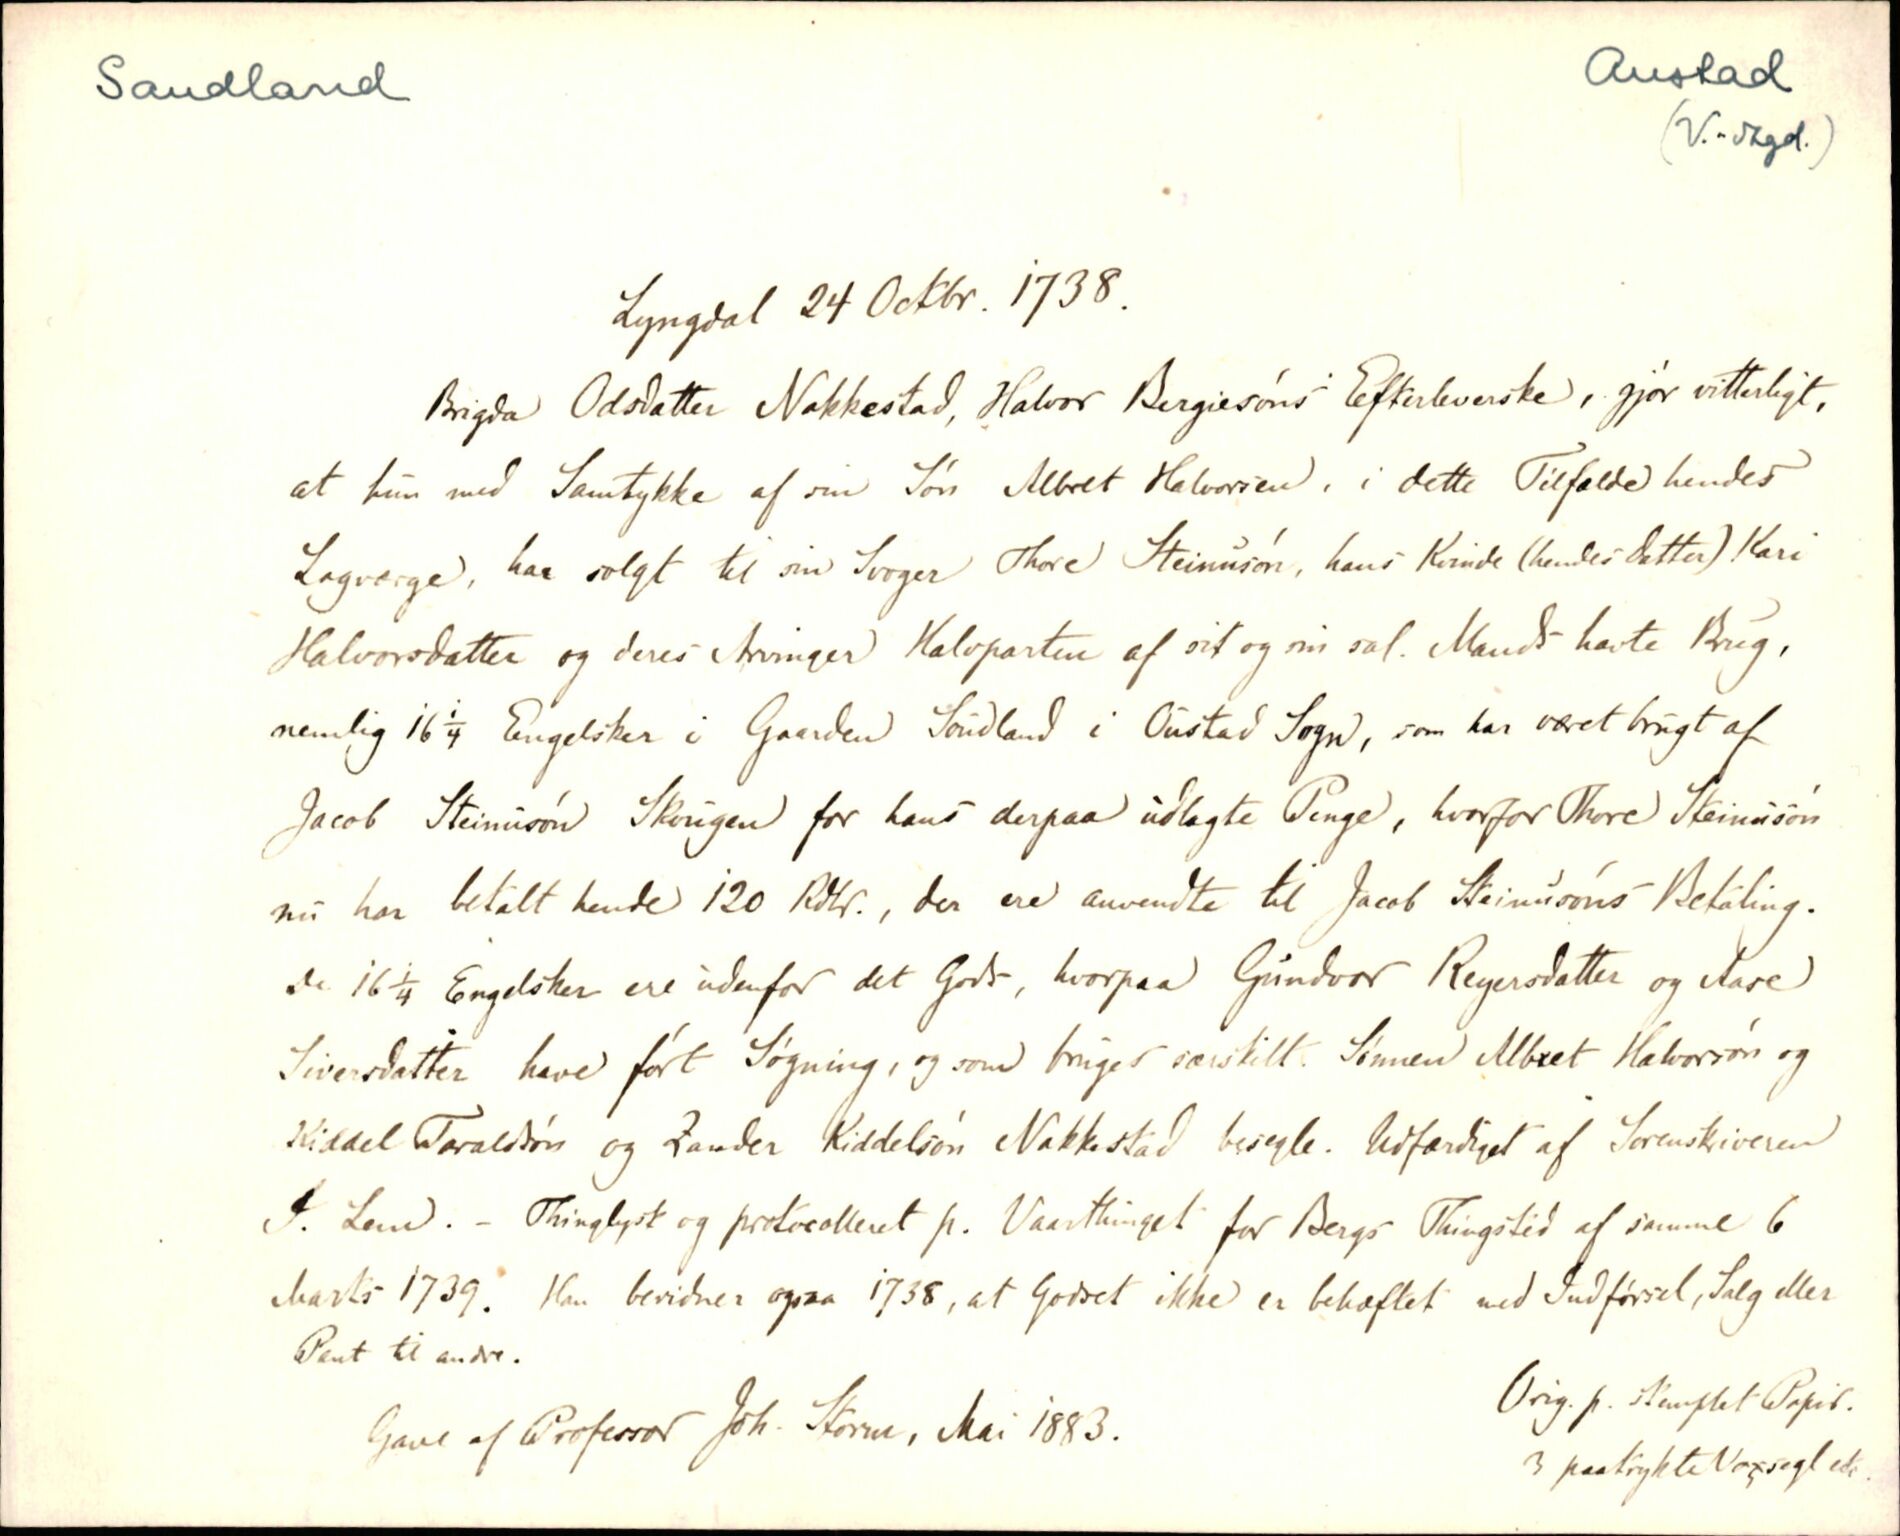 Sandland
Austad
(V.-Agd.)
Lyngdal 24 Octbr. 1738.
Brigda Odsdatter Nakkestad, Halvor Bergiesøns Efterleverske, gjør vitterligt,
at hun med Samtykke af sin Søn Albret Halvorsen, i dette Tilfælde hendes
Lagværge, har solgt til sin Svoger Thore Steinusøn, hans Kvinde (hendes Datter) Kari
Halvorsdatter og deres Arvinger Halvparten af sit og sin sal. Mands havte Brug,
nemlig 16 1/4 Engelsker i Gaarden Soudland i Oustad Sogn, som har været brugt af
Jacob Steinusøn Skougen for hans derpaa udlagte Penge, hvorfor Thore Steinusøn
nu har betalt hende 120 Rdlr., der ere anvendte til Jacob Steinusøns Betaling.
De 16 1/4 Engelsker ere udenfor det Gods, hvorpaa Gundvor Reyersdatter og Aase
Siversdatter have ført Søgning, og som bruges særskilt. Sønnen Albret Halvorsøn og
Kiddel Taraldsøn og Zander Kiddelsøn Nakkestad besegle. Udfærdiget af Sorenskriveren
J. Lem. - Thinglyst og protocolleret p. Vaarthinget for Bergs Thingsted af samme 6
Marts 1739. Han bevidner ogsaa 1738, at Godset ikke er behæftet med Indførsel, Salg eller
Pant til andre.
Gave af Professor Joh. Storm, Mai 1883.
Orig. p. stemplet Papir.
3 paatrykte Voxsegl etc.